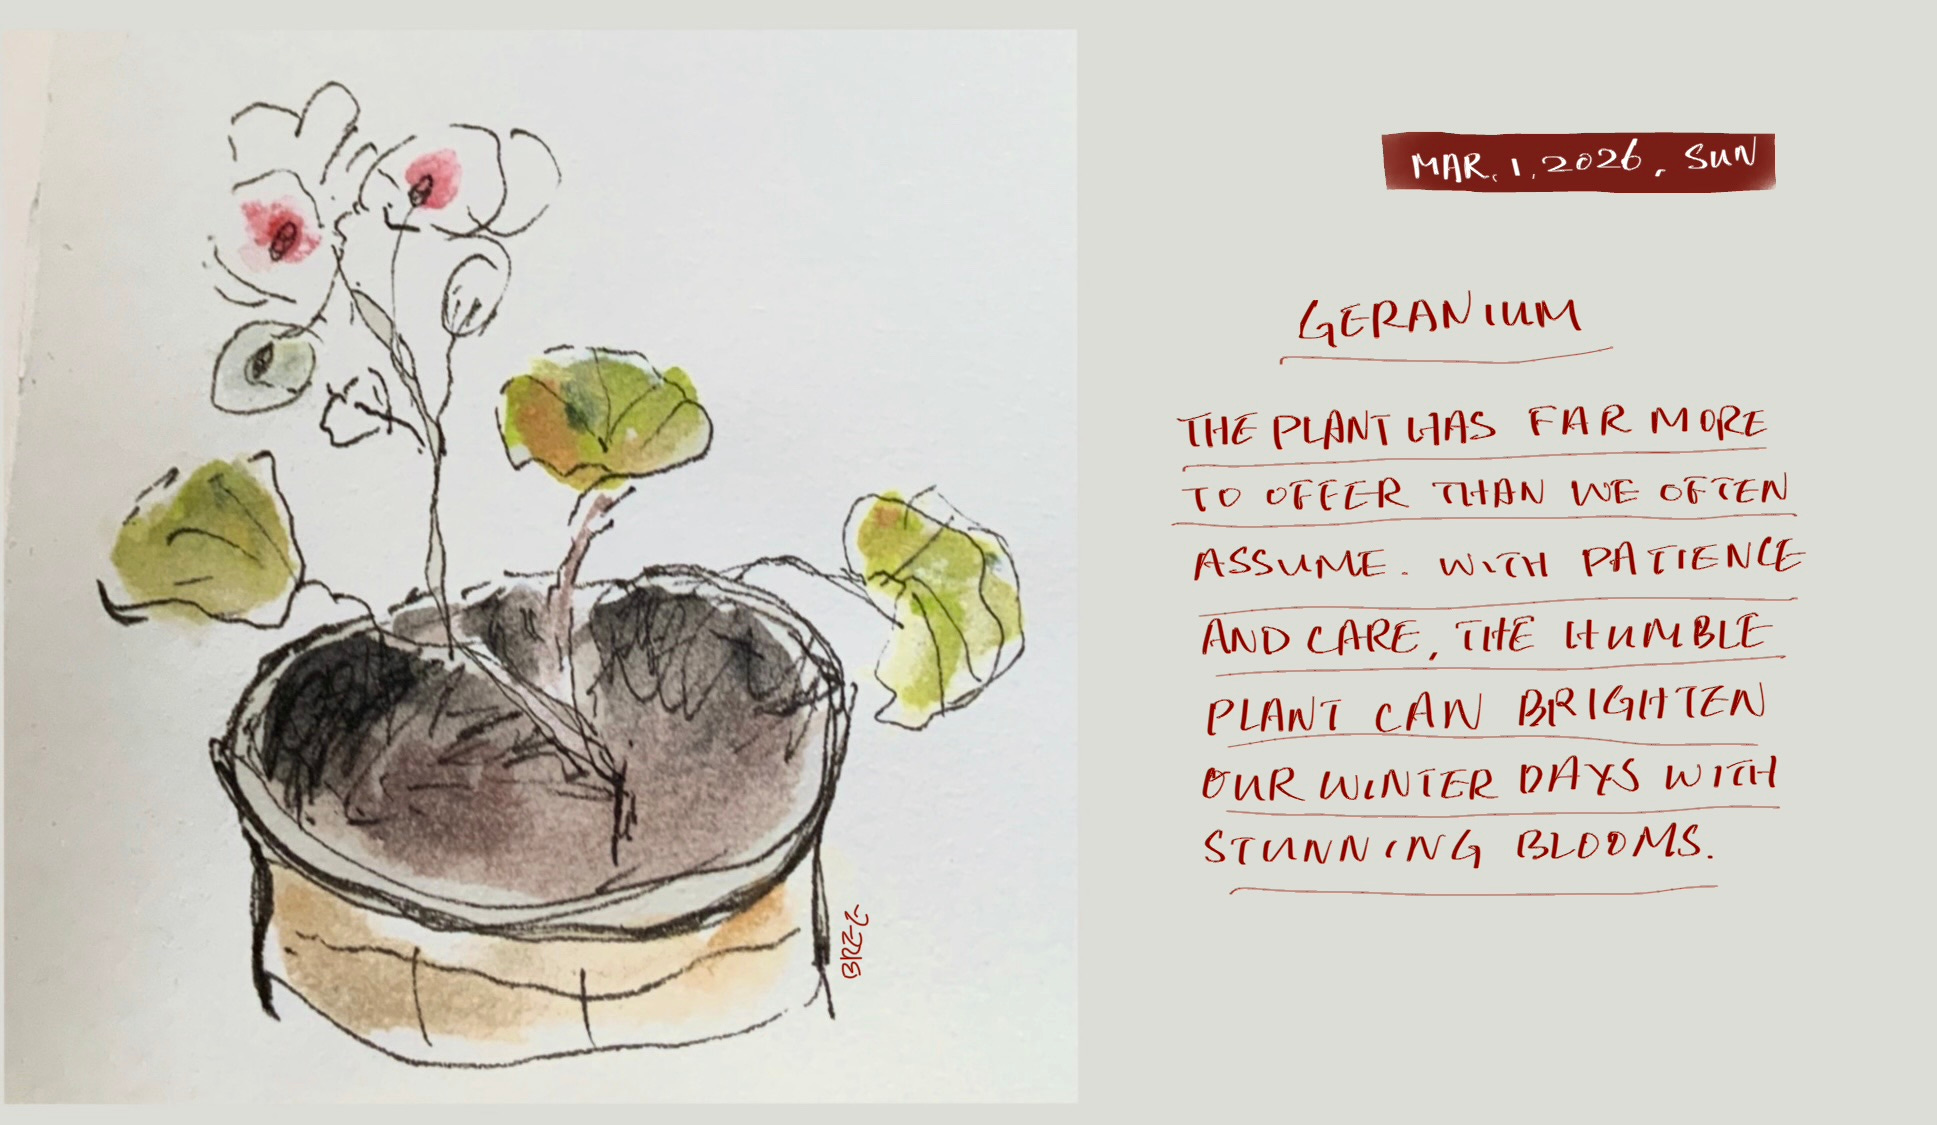 MAR. 1, 2026, SUN
GERANIUM
THE PLANT HAS FAR MORE
TO OFFER THAN WE OFTEN
ASSUME. WITH PATIENCE
AND CARE, THE HUMBLE
PLANT CAN BRIGHTEN
OUR WINTER DAYS WITH
STUNNING BLOOMS.